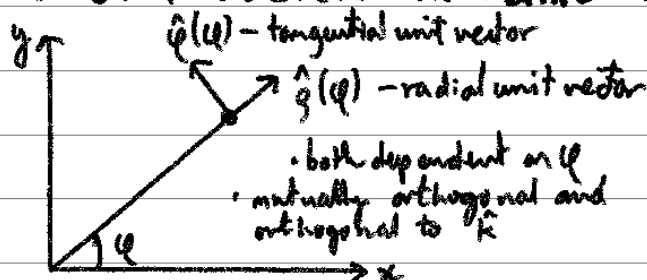 y
φ̂(φ) – tangential unit vector
ρ̂(φ) – radial unit vector
• both dependent on φ
• mutually orthogonal and
orthogonal to k̂
φ
x